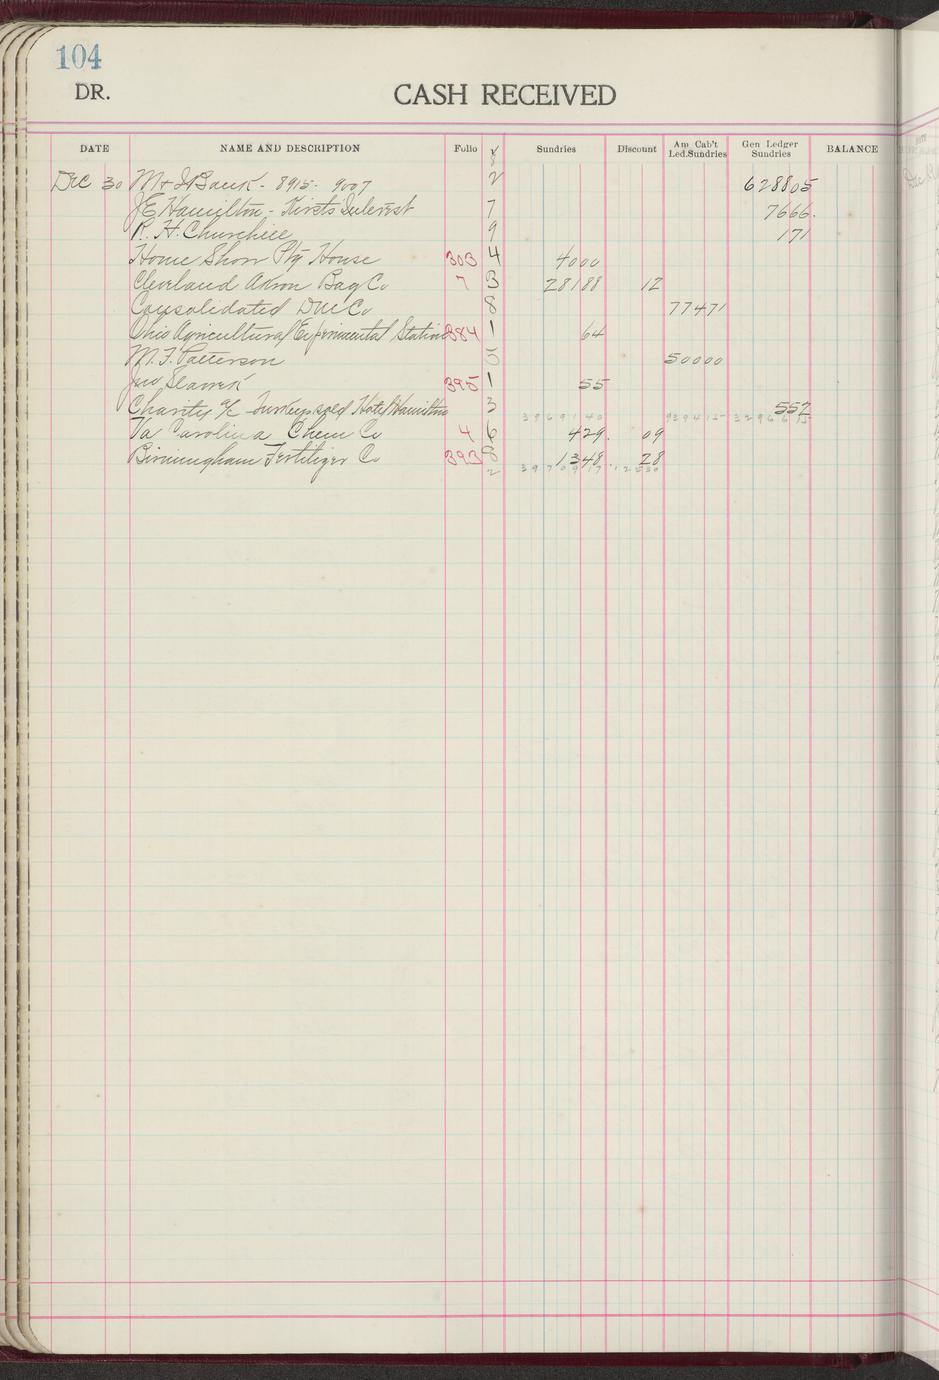 104
DR. CASH RECEIVED
DATE NAME AND DESCRIPTION Folio √ Sundries Discount Am Cab't Led.Sundries Gen Ledger Sundries BALANCE
8
Dec 30 M & J Bank - 8915 - 9007 2 628805
JE Hamilton - Kirsts Interest 7 7666.
R. H. Churchill 9 171
Home Show Ptg House 303 4 4000
Cleveland Akron Bag Co 7 3 28188 12
Consolidated DW Co 8 77471
Ohio Agricultural Experimental Station 384 1 64
M. F. Patterson 5 50000
Jno 395 1 55
Charity a/c Turkeys sold Hotel Hamilton 3 552
3969140 939415 3296615
Va Carolina Chem Co 4 6 429. 09
Birmingham Fertilizer Co 393 8 1348 28
2 3970917 12530